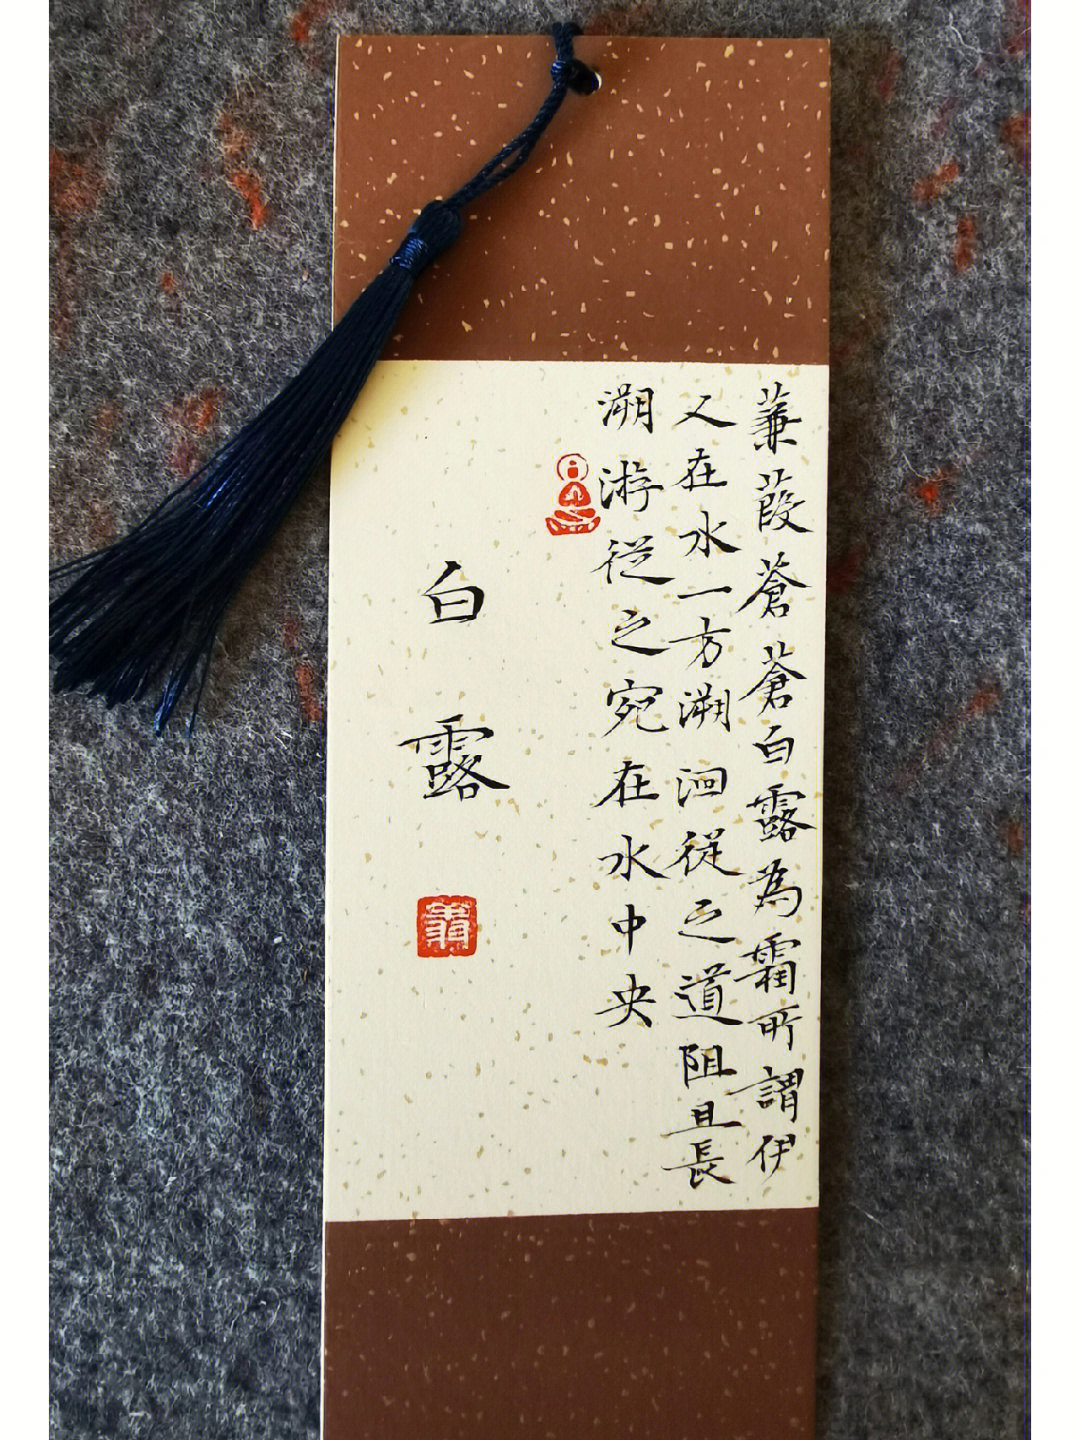 蒹葭蒼蒼白露為霜所謂伊
人在水一方溯洄從之道阻且長
溯游從之宛在水中央
白露